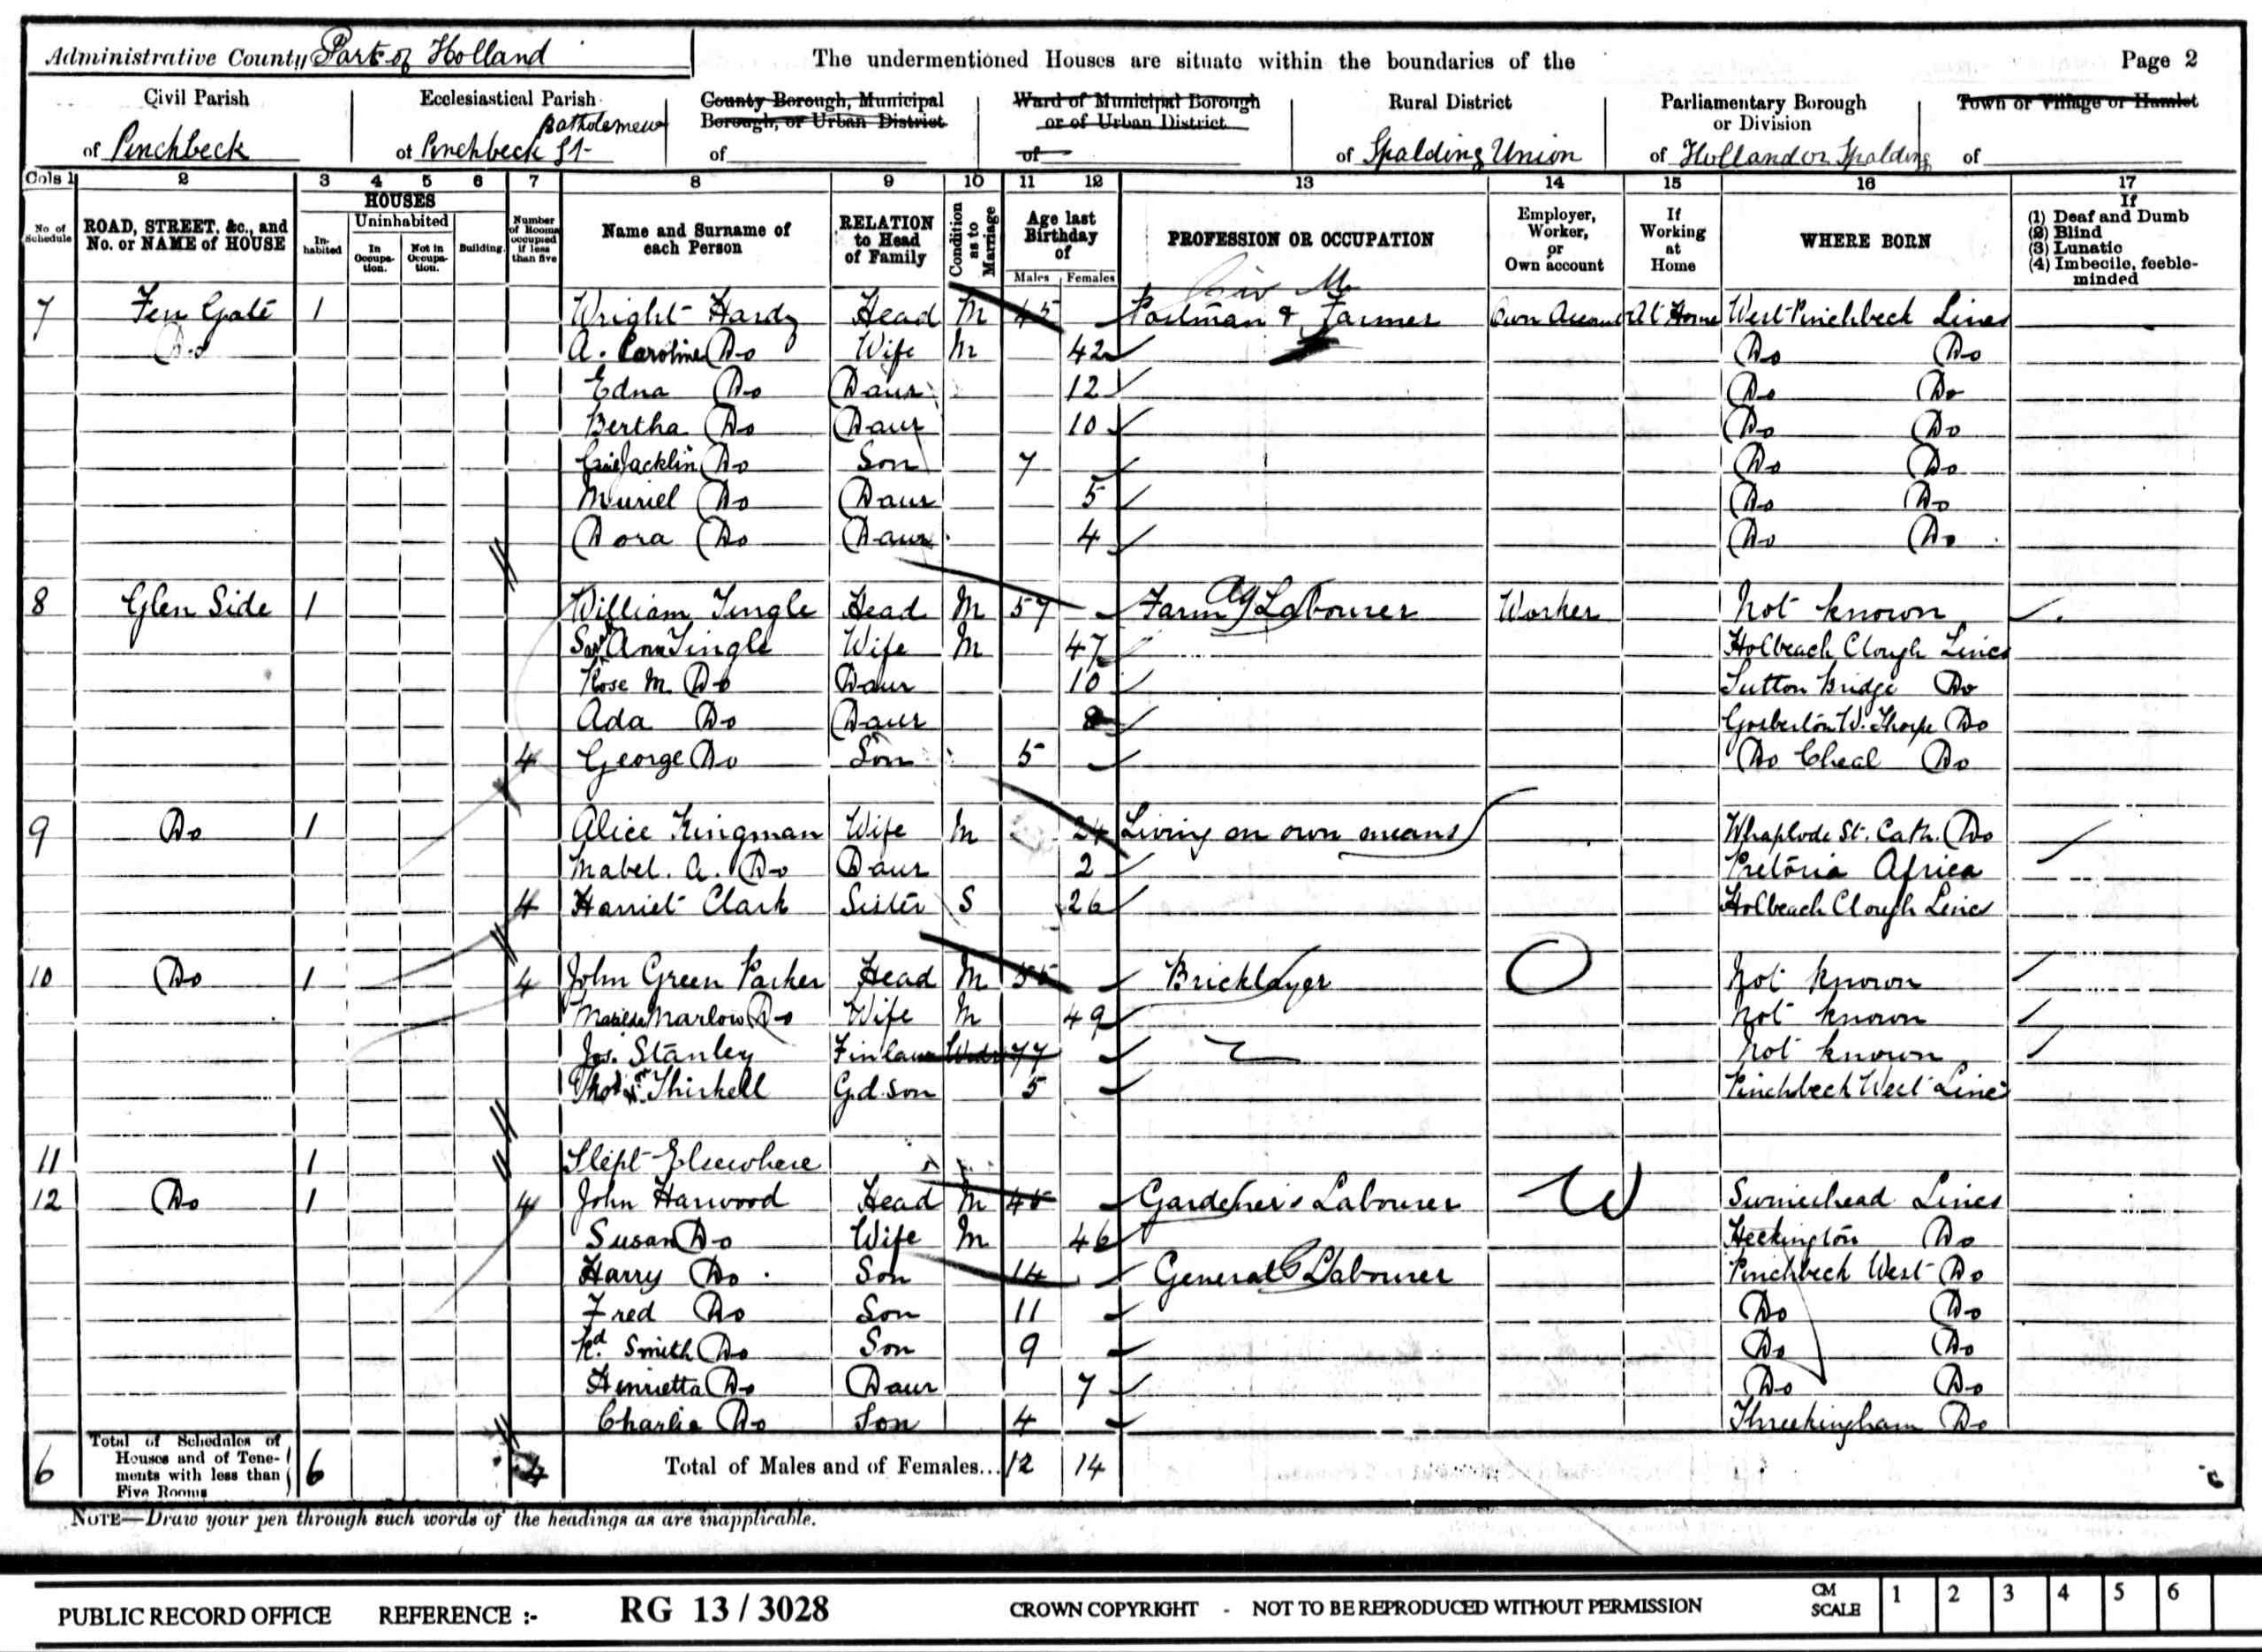 Administrative County Parts of Holland The undermentioned Houses are situate within the boundaries of the Page 2
Civil Parish Ecclesiastical Parish County Borough, Municipal Borough, or Urban District Ward of Municipal Borough or of Urban District Rural District Parliamentary Borough or Division Town or Village or Hamlet
of Pinchbeck of Pinchbeck St Batholemew of of of Spalding Union of Holland or Spalding of
Cols 1 2 3 4 5 6 7 8 9 10 11 12 13 14 15 16 17
No. of Schedule ROAD, STREET, &c., and No. or NAME of HOUSE HOUSES Inhabited Uninhabited In Occupation. Not in Occupation. Building. Number of Rooms occupied if less than five Name and Surname of each Person RELATION to Head of Family Condition as to Marriage Age last Birthday of Males Females PROFESSION OR OCCUPATION Employer, Worker, or Own account If Working at Home WHERE BORN If (1) Deaf and Dumb (2) Blind (3) Lunatic (4) Imbecile, feeble-minded
7 Fen Gate 1 Wright Hardy Head M 45 Postman & Farmer Own Account At Home West Pinchbeck Lincs
Do A. Caroline Do Wife M 42 Do Do
Edna Do Daur 12 Do Do
Bertha Do Daur 10 Do Do
Jacklin Do Son 7 Do Do
Muriel Do Daur 5 Do Do
Dora Do Daur 4 Do Do
8 Glen Side 1 William Tingle Head M 57 Farm Labourer Ag Worker Not known
Sarh Ann Tingle Wife M 47 Holbeach Clough Lincs
Rose M. Do Daur 10 Sutton Bridge Do
Ada Do Daur 8 Gosberton W. Thorpe Do
4 George Do Son 5 Do Cheal Do
9 Do 1 Alice Kingman Wife M 24 Living on own means Whaplode St. Cath. Do
Mabel. A. Do Daur 2 Pretoria Africa
4 Harriet Clark Sister S 26 Holbeach Clough Lincs
10 Do 1 4 John Green Parker Head M 55 Bricklayer O Not known
Matilda Marlow Do Wife M 49 Not known
Jos. Stanley Finlaw Widr 77 Not known
Thos Thirkell Gd. son 5 Pinchbeck West Lincs
11 1 Slept Elsewhere
12 Do 1 4 John Harwood Head M 45 Gardener's Labourer W Swineshead Lincs
Susan Do Wife M 46 Heckington Do
Harry Do Son 14 General Labourer Pinchbeck West Do
Fred Do Son 11 Do Do
Rd. Smith Do Son 9 Do Do
Henrietta Do Daur 7 Do Do
Charlie Do Son 4 Threekingham Do
6 Total of Schedules of Houses and of Tenements with less than Five Rooms 6 4 Total of Males and of Females... 12 14
NOTE—Draw your pen through such words of the headings as are inapplicable.
PUBLIC RECORD OFFICE REFERENCE :- RG 13 / 3028 CROWN COPYRIGHT - NOT TO BE REPRODUCED WITHOUT PERMISSION CM SCALE 1 2 3 4 5 6